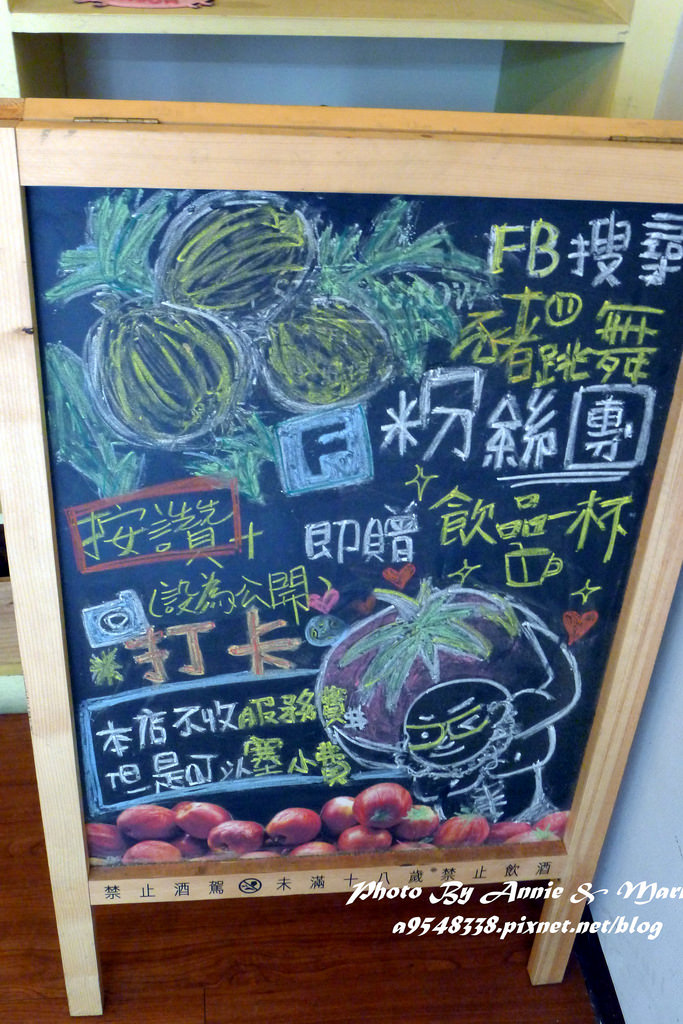 FB搜尋
豬跳舞
粉絲團
F
按讚+
即贈
飲品一杯
(設為公開)
打卡
本店不收服務費
但是可以塞小費
禁止酒駕 未滿十八歲禁止飲酒
Photo By Annie & Mark
a9548338.pixnet.net/blog